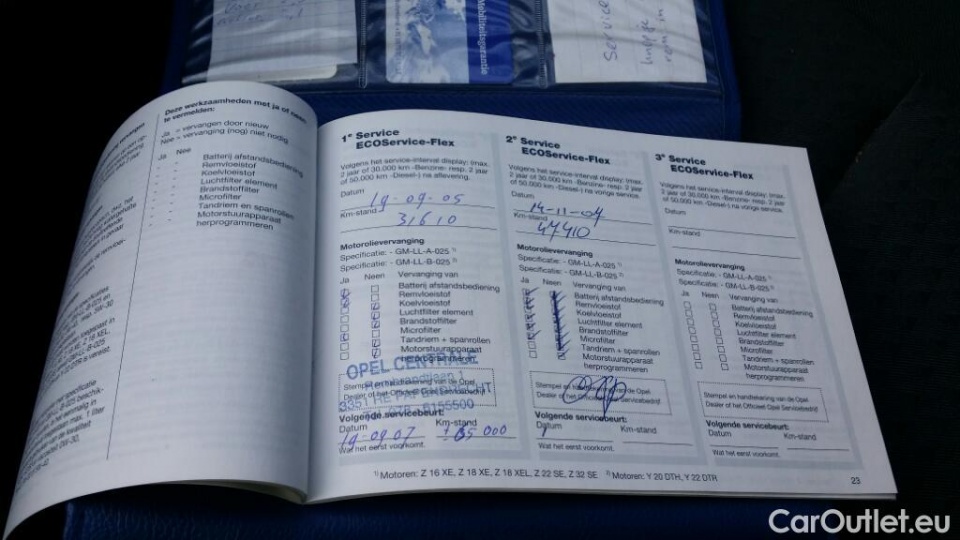 Service
Mobiliteitsgarantie
Service
Deze werkzaamheden met ja of neen
te vermelden:
Ja = vervangen door nieuw
Nee = vervanging (nog) niet nodig
Ja Nee
Batterij afstandsbediening
Remvloeistof
Koelvloeistof
Luchtfilter element
Brandstoffilter
Microfilter
Tandriem en spanrollen
Motorstuurapparaat
herprogrammeren
1e Service
ECOService-Flex
Volgens het service-interval display: (max.
2 jaar of 30.000 km -Benzine- resp. 2 jaar
of 50.000 km -Diesel-) na aflevering.
Datum
19-09-05
Km-stand
31610
Motorolievervanging
Specificatie: - GM-LL-A-025 1)
Specificatie: - GM-LL-B-025 2)
Ja Neen Vervanging van
Batterij afstandsbediening
Remvloeistof
Koelvloeistof
Luchtfilter element
Brandstoffilter
Microfilter
Tandriem + spanrollen
Motorstuurapparaat
herprogrammeren
OPEL CENTRALE
Stempel en handtekening van de Opel
Dealer of het Officieel Opel Servicebedrijf
Volgende servicebeurt:
Datum Km-stand
19-09-07 ± 65 000
Wat het eerst voorkomt.
2e Service
ECOService-Flex
Volgens het service-interval display: (max.
2 jaar of 30.000 km -Benzine- resp. 2 jaar
of 50.000 km -Diesel-) na vorige service.
Datum
14-11-07
Km-stand
47410
Motorolievervanging
Specificatie: - GM-LL-A-025 1)
Specificatie: - GM-LL-B-025 2)
Ja Neen Vervanging van
Batterij afstandsbediening
Remvloeistof
Koelvloeistof
Luchtfilter element
Brandstoffilter
Microfilter
Tandriem + spanrollen
Motorstuurapparaat
herprogrammeren
Stempel en handtekening van de Opel
Dealer of het Officieel Opel Servicebedrijf
Volgende servicebeurt:
Datum Km-stand
Wat het eerst voorkomt.
3e Service
ECOService-Flex
Volgens het service-interval display: (max.
2 jaar of 30.000 km -Benzine- resp. 2 jaar
of 50.000 km -Diesel-) na vorige service.
Datum
Km-stand
Motorolievervanging
Specificatie: - GM-LL-A-025 1)
Specificatie: - GM-LL-B-025 2)
Ja Neen Vervanging van
Batterij afstandsbediening
Remvloeistof
Koelvloeistof
Luchtfilter element
Brandstoffilter
Microfilter
Tandriem + spanrollen
Motorstuurapparaat
herprogrammeren
Stempel en handtekening van de Opel
Dealer of het Officieel Opel Servicebedrijf
Volgende servicebeurt:
Datum Km-stand
Wat het eerst voorkomt.
1) Motoren: Z 16 XE, Z 18 XE, Z 18 XEL, Z 22 SE, Z 32 SE 2) Motoren: Y 20 DTH, Y 22 DTR
23
CarOutlet.eu